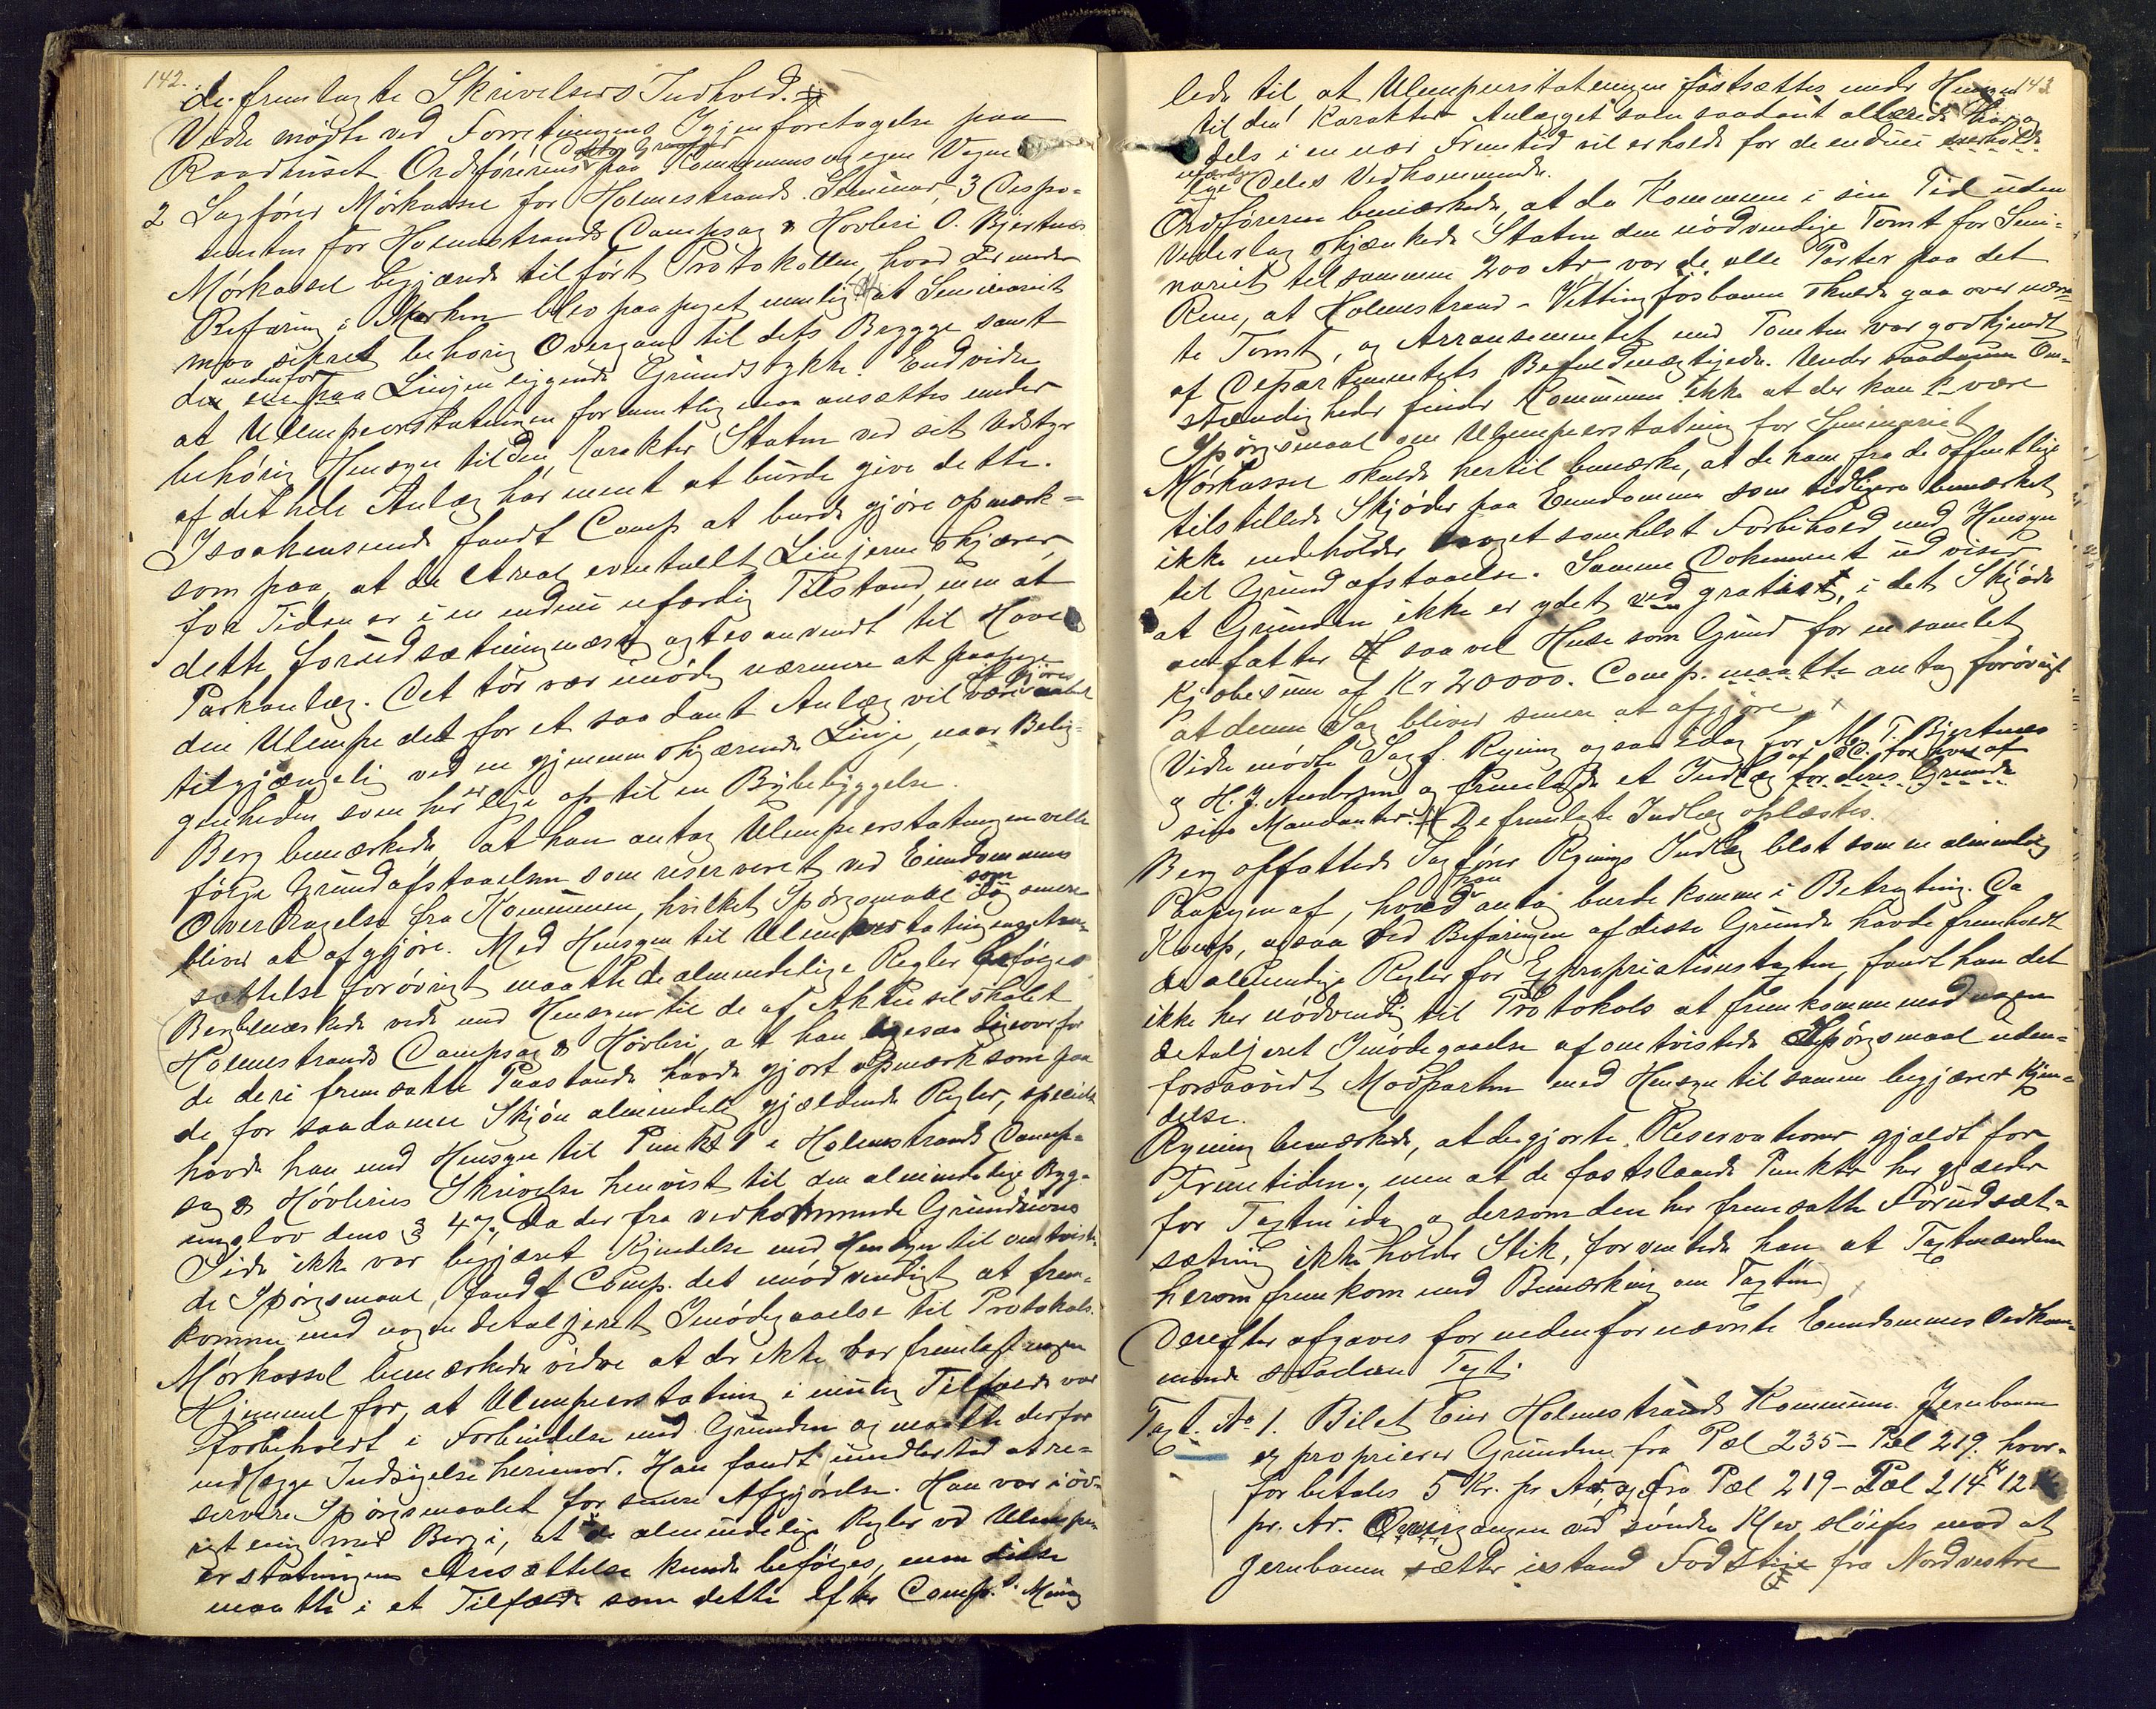 142.
de fremlagte Skrivelsers Indhold.
Vidre mødte ved Forretningens Igjenforetagelse paa
Raadhuset Ordføreren paa Kommunens og egne Vegne
2 Sagfører Mørkassel for Holmestrands Seminar, 3 Dispo-
nenten for Holmestrands Dampsag & Høvleri O. Bjertnæs
Mørkassel begjærede tilført Protokollen, hvad der under
Befaring i Marken blev paapeget nemlig at Seminariet
maa sikret behørig Overgang til dets Brygge samt
den nedenfor Linjen liggende Grundstykke. Endvidre
at Ulempeerstatningen formentlig maa ansættes under
behørig Hensyn til den Karakter Staten ved sit Udstyr
af det hele Anlæg har ment at burde give dette.
Isaahenseende fandt Comp at burde gjøre opmærk-
som paa, at de Areal eventuellt Linjerne skjærer,
for Tiden er i en endnu ufærdig Tilstand, men at
dette forudsætningsmæssig agtes anvendt til Have
Parkanlæg. Det tør vær unødig nærmere at paapege
den Ulempe det for et saadant Anlæg vil være
tilgjængelig ved en gjennemskjærende Linje, naar Belig-
genheden som her er lige op til en Bybebyggelse.
Berg bemærkede, at han antog Ulempeerstatningen vilde
følge Grundafstaaelsen som reserveret ved Eiendommens
Overdragelse fra Kommunen, hvilket Spørgsmaal som senere
bliver at afgjøre. Med Hensyn til Ulempeerstatningens An-
sættelse forøvrigt maatte de almindelige Regler følges
Berg bemærkede vidre med Hensyn til de af Aktieselskabet
Holmestrands Dampsag & Høvleri, at han ligesaa ligeoverfor
de deri fremsatte Paastande havde gjort opmærksom paa
de for saadanne Skjøn almindelig gjældende Regler, specielt
havde han med Hensyn til Punkt 1 i Holmestrands Damp-
sag & Høvleries Skrivelse henvist til den almindelige Byg-
ningslov dens § 47. Da der fra vedkommende Grundeieres
Side ikke var begjæret Kjendelse med Hensyn til omtviste-
de Spørgsmaal, fandt Comp. det unødvendigt at frem-
komme med nogen detaljeret Imødegaaelse til Protokols.
Mørkassel bemærkede vidre at der ikke var fremlagt nogen
Hjemmel for, at Ulempeerstatning i nævnte Tilfælde var
forbeholdt i Forbindelse med Grunden og maatte derfor
nedlægge Indsigelse herimod. Han fandt imidlertid at re-
servere Spørgsmaalet for senere Afgjørelse. Han var iøv-
rigt enig med Berg i, at de almindelige Regler ved Ulempe-
erstatningens Ansættelse kunde befølges, men disse
maatte i et Tilfælde som dette efter Comp.'s Mening
143
lede til at Ulempeerstatningen fastsættes under Hensyn
til den Karakter Anlægget som saadant allerede har og
dels i en nær Fremtid vil erholde for de endnu
ufærdige Deles Vedkommende.
Ordføreren bemærkede, at da Kommunen i sin Tid uden
Vederlag skjænkede Staten den nødvendige Tomt for Semi-
nariet tilsammen 200 Ar var de alle Parter paa det
Rene, at Holmestrand - Vittingfosbanen skulde gaa over nævn-
te Tomt, og Arransementet med Tomten var godkjendt
af Departementets Befuldmægtigede. Under saadanne Om-
stændigheder finder Kommunen ikke at der kan være
Spørgsmaal om Ulempeerstatning for Seminariet
Mørkassel skulde hertil bemærke, at de ham fra de offentlige
tilstillede Skjøder paa Eiendommen som tidligere bemærket
ikke indeholder noget somhelst Forbehold med Hensyn
til Grundafstaaelse. Samme Dokument udviser
at Grunden ikke er ydet gratis, i det Skjøde
omfatter saavel Huse som Grund for en samlet
Kjøbesum af Kr 20000. Comp. maatte antag forøvrigt
at denne Sag bliver senere at afgjøre.
Vidre mødte Sagf. Ryning ogsaa idag for M. T. Bjertnæs
og H. J. Andersen og fremlagde et Indlæg
sine Mandanter. De fremlagte Indlæg oplæstes.
Berg opfattede Sagfører Rynings Indlæg blot som en almindelig
Paapegen af, hvad han antog burde komme i Betragtning. Da
Komp, ogsaa ved Befaringen af disse Grunde havde fremholdt
de almindige Regler for Expropriationstaxten, fandt han det
ikke her nødvendig til Protokols at fremkomme med nogen
detaljeret Imødegaaelse af omtvistede Spørgsmaal uden-
forsaavidt Modparten med Hensyn til samme begjærer Kjen-
delse.
Ryning bemærkede, at de gjorte Reservationer gjaldt for
Fremtiden, men at de fastslaaede Punkter her gjælder
for Taxten idag og dersom den her fremsatte Forudsæt-
sætning ikke holder Stik, forventede han at Taxtmændene
herom fremkom med Bemærkning om Taxten
Derefter afgaves for nedenfornævnte Eiendommes Vedkom-
mende saadan Taxt:
Taxt. No 1. Bilet Eier Holmestrands Kommune. Jernbanen
exproprierer Grunden fra Pæl 235 - Pæl 219. hvor-
for betales 5 Kr. pr Ar, og fra Pæl 219 - Pæl 214 12 Kr
pr. Ar. Overgangen ved søndre Klev sløifes mod at
Jernbanen sætter istand Fodstige fra Nordvestre